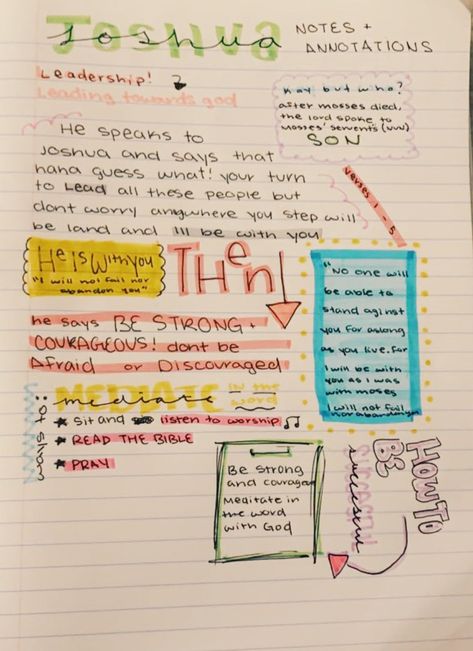 Joshua
NOTES +
ANNOTATIONS
Leadership!
Leading towards god
Kay but who?
after mosses died,
the lord spoke to
Mosses' servents (NUN)
SON
He speaks to
Joshua and says that
haha guess what! your turn
to Lead all these people but
dont worry anywhere you step will
be land and Ill be with you
verses 1 - 5
He Is With you
"I will not fail nor
abandon you"
THen
"No one will
be able to
stand against
you for aslong
as you live. for
I will be with
you as I was
with moses
I will not fail
nor abandon you
he says BE STRONG +
COURAGEOUS! dont be
Afraid or Discouraged
MEDIATE
mediate
in the
word
what to:
★ Sit and listen to worship ♫
★ READ THE BIBLE
★ PRAY
HOW TO
BE
SUCCESSFUL
Be strong
and courageous
Meditate in
the word
with God